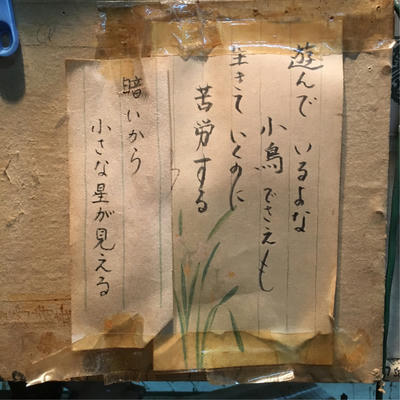 遊んでいるよな
小鳥でさえも
生きていくのに
苦労する
暗いから
小さな星が見える